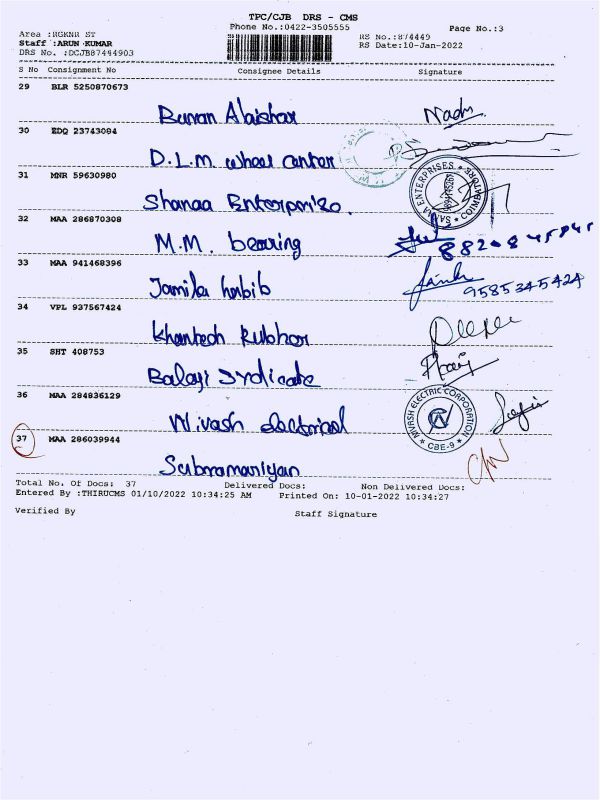 TPC/CJB DRS - CMS
Phone No.:0422-3505555
Page No.:3
Area :RGKNR ST
Staff :ARUN KUMAR
DRS No. :DCJB87444903
RS No.:874449
RS Date:10-Jan-2022
S No Consignment No Consignee Details Signature
29 BLR 5250870673
30 EDQ 23743084
D.L.M wheel center
31 MNR 59630980
Shanaa Enterprize.
ENTERPRISES
32 MAA 286870308
M.M. bearing
33 MAA 941468396
Jamila habib
9585345424
34 VPL 937567424
35 SHT 408753
Balaji Syndicate
36 MAA 284836129
Nivash electrical
NIVASH ELECTRIC CORPORATION
CBE-9
37 MAA 286039944
Subramaniyan
Total No. Of Docs: 37 Delivered Docs: Non Delivered Docs:
Entered By :THIRUCMS 01/10/2022 10:34:25 AM Printed On: 10-01-2022 10:34:27
Verified By Staff Signature